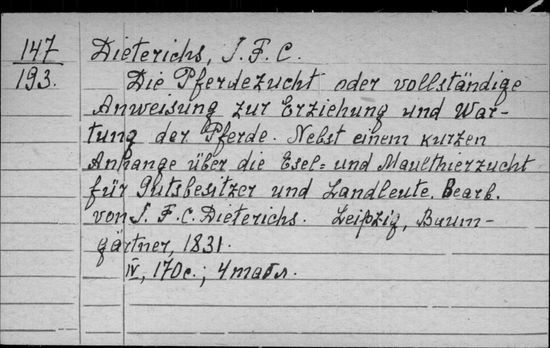 147
193.
Dieterichs, J. F. C.
Die Pferdezucht oder vollständige
Anweisung zur Erziehung und War-
tung der Pferde. Nebst einem kurzen
Anhange über die Esel- und Maulthierzucht
für Gutsbesitzer und Landleute. Bearb.
von J. F. C. Dieterichs. Leipzig, Baum-
gärtner, 1831.
IV, 170 с.; 4 табл.